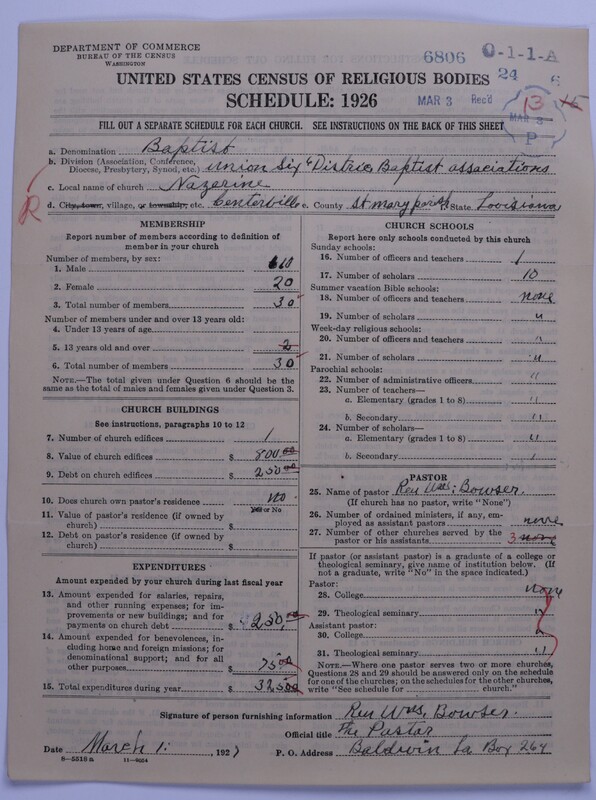 DEPARTMENT OF COMMERCE
BUREAU OF THE CENSUS
WASHINGTON
6806 0-1-1-A
UNITED STATES CENSUS OF RELIGIOUS BODIES 24 6
SCHEDULE: 1926 MAR 3 Rec'd 13
MAR 3
P
FILL OUT A SEPARATE SCHEDULE FOR EACH CHURCH. SEE INSTRUCTIONS ON THE BACK OF THIS SHEET
a. Denomination Baptist
b. Division (Association, Conference, Diocese, Presbytery, Synod, etc.) Union Six District Baptist associations
c. Local name of church Nazerine
d. City, town, village, or township, etc. Centerville e. County St mary parish f. State Louisiana
R
MEMBERSHIP
Report number of members according to definition of
member in your church
Number of members, by sex:
1. Male 10
2. Female 20
3. Total number of members 30
Number of members under and over 13 years old:
4. Under 13 years of age
5. 13 years old and over 2
6. Total number of members 30
NOTE.—The total given under Question 6 should be
the same as the total of males and females given under Question 3.
CHURCH BUILDINGS
See instructions, paragraphs 10 to 12
7. Number of church edifices 1
8. Value of church edifices $ 800 00
9. Debt on church edifices $ 250 00
10. Does church own pastor's residence no
Yes or No
11. Value of pastor's residence (if owned by
church) $
12. Debt on pastor's residence (if owned by
church) $
EXPENDITURES
Amount expended by your church during last fiscal year
13. Amount expended for salaries, repairs,
and other running expenses; for im-
provements or new buildings; and for
payments on church debt $ 250.
14. Amount expended for benevolences, in-
cluding home and foreign missions; for
denominational support; and for all
other purposes $ 75 00
15. Total expenditures during year $ 325 00
CHURCH SCHOOLS
Report here only schools conducted by this church
Sunday schools:
16. Number of officers and teachers 1
17. Number of scholars 10
Summer vacation Bible schools:
18. Number of officers and teachers none
19. Number of scholars "
Week-day religious schools:
20. Number of officers and teachers "
21. Number of scholars "
Parochial schools:
22. Number of administrative officers "
23. Number of teachers—
a. Elementary (grades 1 to 8) "
b. Secondary "
24. Number of scholars—
a. Elementary (grades 1 to 8) "
b. Secondary "
PASTOR
25. Name of pastor Rev Wm: Bowser.
(If church has no pastor, write "None")
26. Number of ordained ministers, if any, em-
ployed as assistant pastors none
27. Number of other churches served by the
pastor or his assistants 3 none
If pastor (or assistant pastor) is a graduate of a college or
theological seminary, give name of institution below. (If
not a graduate, write "No" in the space indicated.)
Pastor:
28. College none
29. Theological seminary "
Assistant pastor:
30. College "
31. Theological seminary "
NOTE.—Where one pastor serves two or more churches,
Questions 28 and 29 should be answered only on the schedule
for one of the churches; on the schedules for the other churches,
write "See schedule for church."
Signature of person furnishing information Rev Wm. Bowser.
Official title The Pastor
Date March 1. 1927 P. O. Address Baldwin La Box 264
8—5518a 11—9054